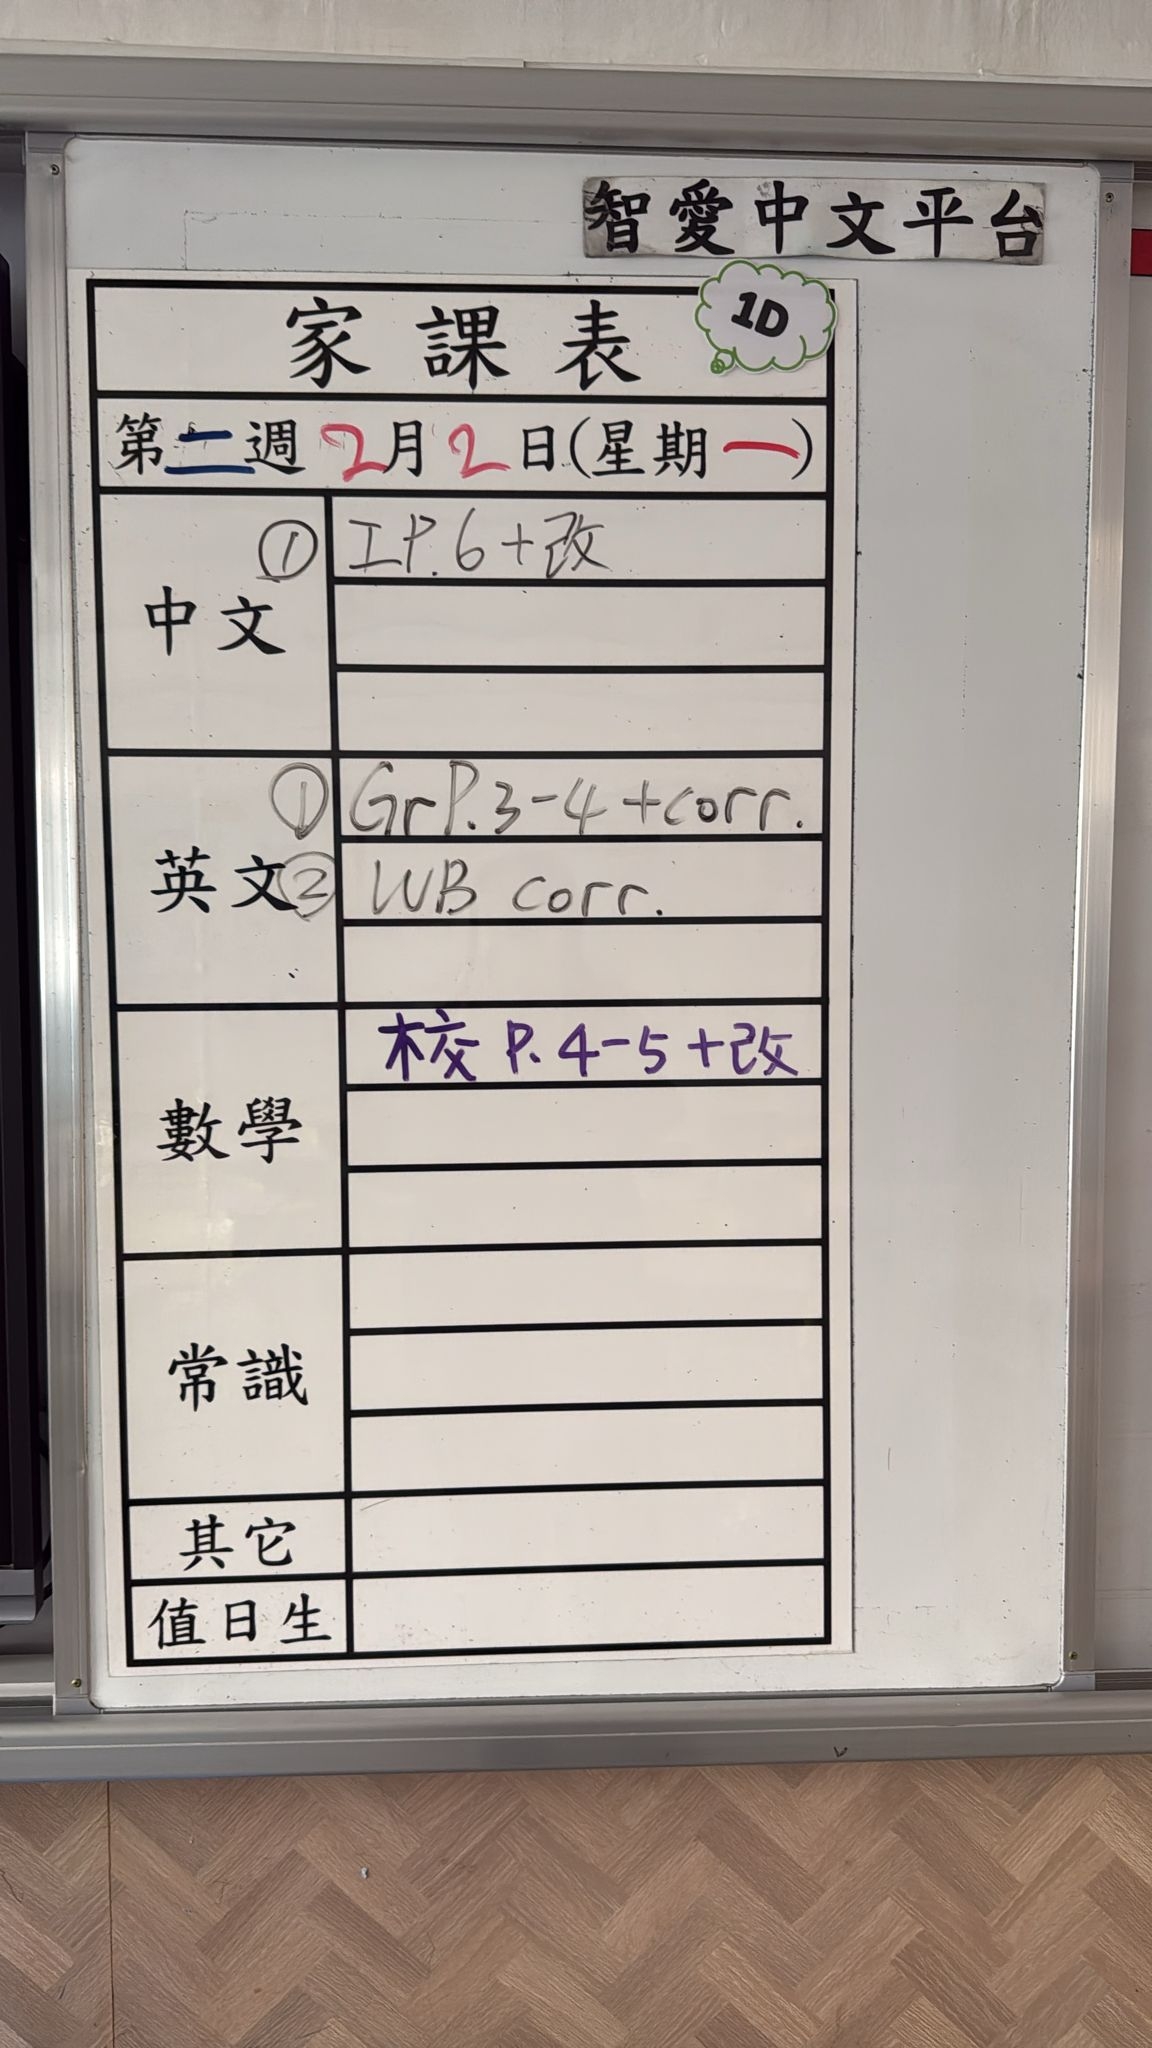 智愛中文平台
家課表
1D
第二週 2月2日(星期一)
中文
① 工P.6+改
英文
① GrP.3-4+corr.
② WB corr.
數學
校 P.4-5+改
常識
其它
值日生